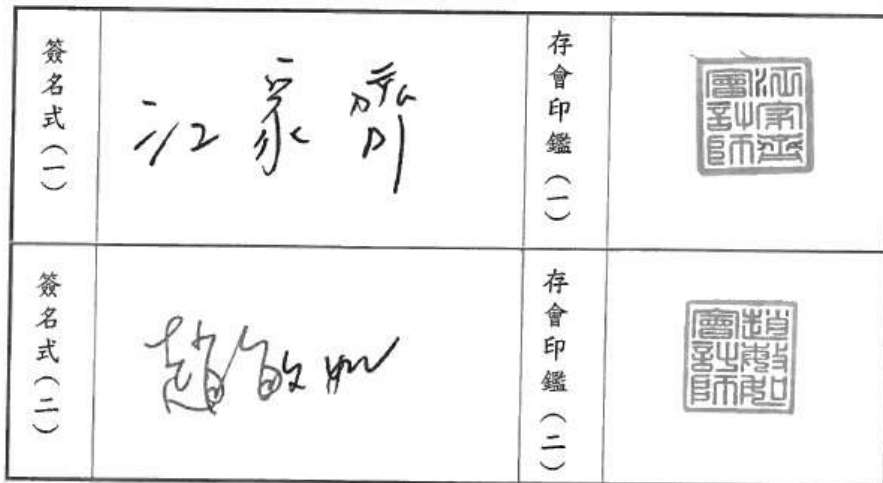 簽名式(一)
江家齊
存會印鑑(一)
江家齊會計師
簽名式(二)
趙敏如
存會印鑑(二)
趙敏如會計師